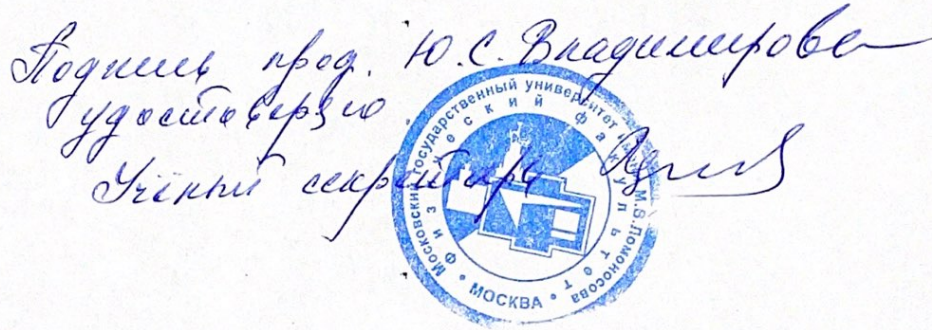 Подпись проф. Ю.С. Владимирова
удостоверяю.
Учёный секретарь
Московский государственный университет имени М.В.Ломоносова
Физический факультет
• МОСКВА •